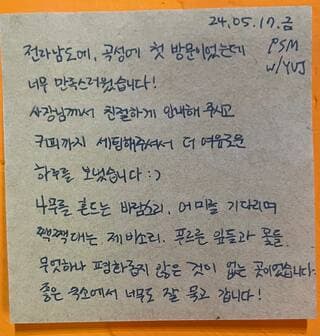 24.05.17.금
전라남도에, 곡성에 첫 방문이었는데
PSM
w/YUJ
너무 만족스러웠습니다!
사장님께서 친절하게 안내해 주시고
커피까지 세팅해주셔서 더 여유로운
하루를 보냈습니다 :)
나무를 흔드는 바람소리, 어미를 기다리며
짹짹대는 제비소리. 푸르른 잎들과 꽃들
무엇하나 평화롭지 않은 것이 없는 곳이었습니다.
좋은 숙소에서 너무도 잘 묵고 갑니다!